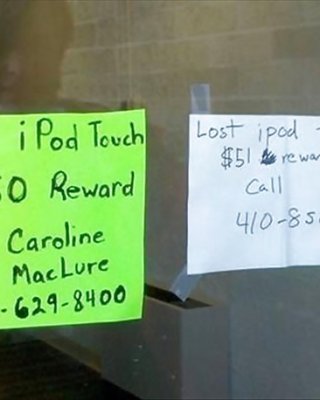 iPod Touch
50 Reward
Caroline
MacLure
-629-8400
Lost ipod -
$51 rewar
Call
410-85